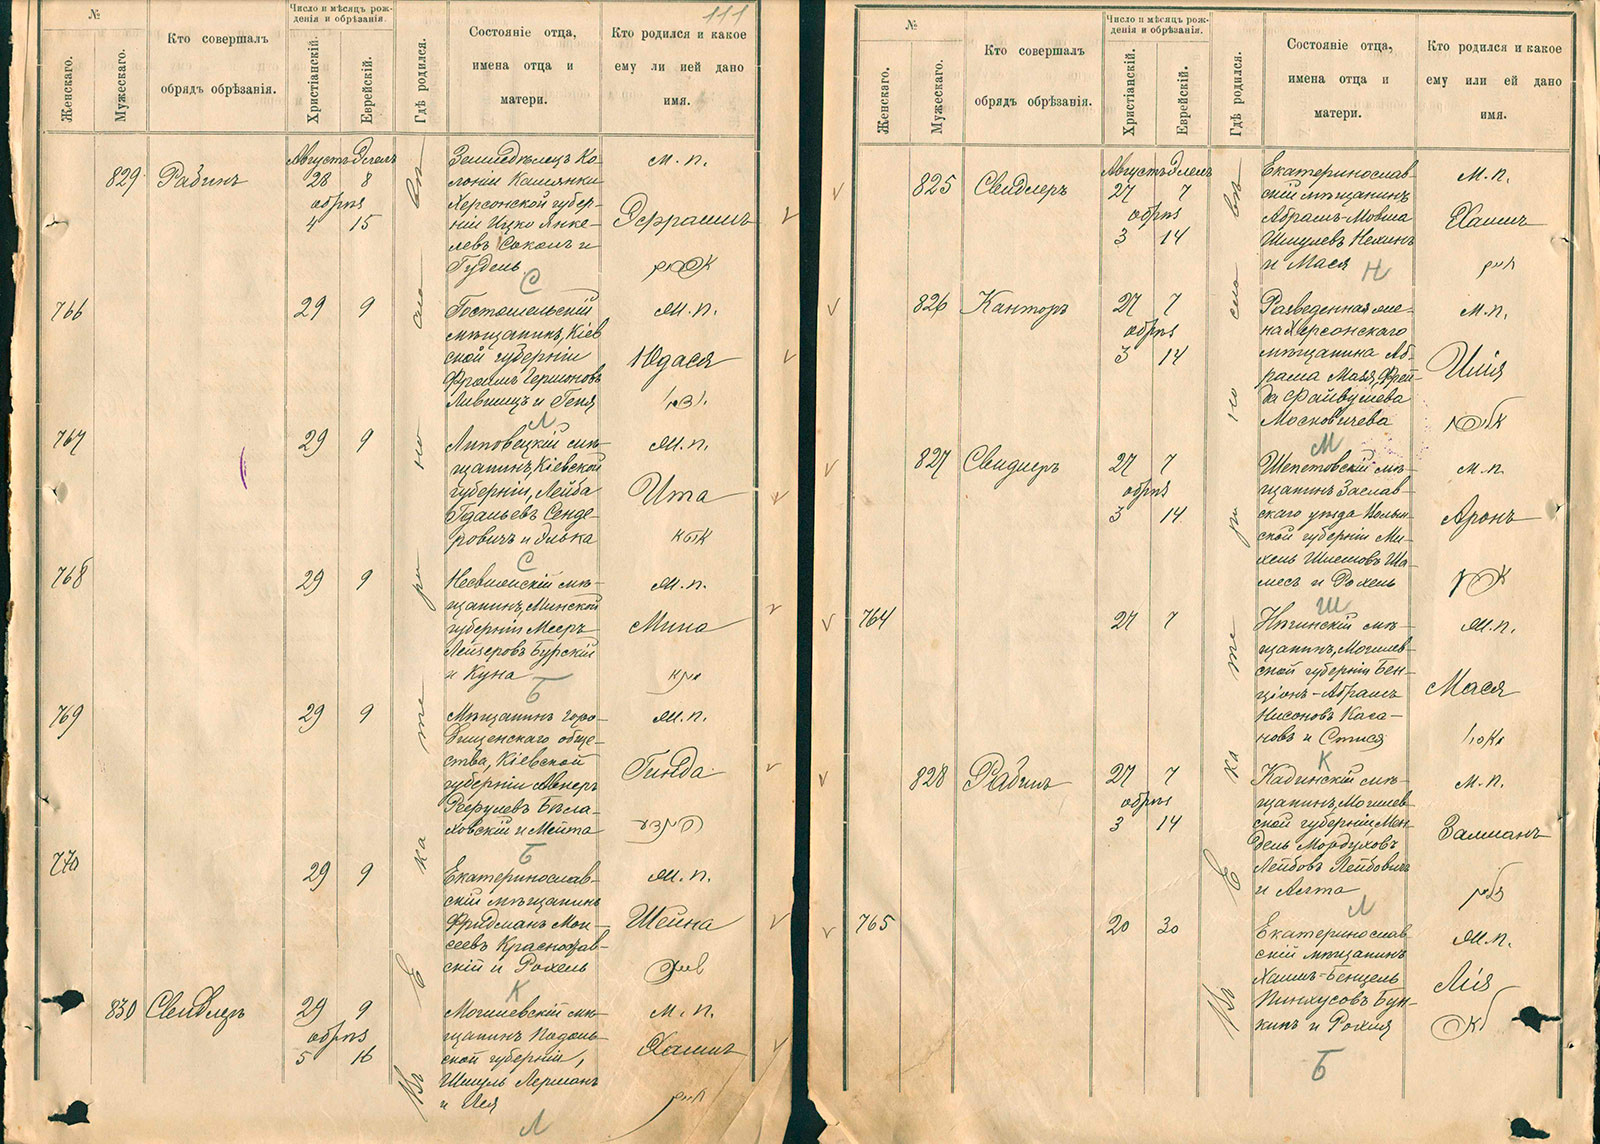 111
№
Женскаго.
Мужескаго.
Кто совершалъ
обрядъ обрѣзанія.
Число и мѣсяцъ рож-
денія и обрѣзанія.
Христіанскій.
Еврейскій.
Гдѣ родился.
Состояніе отца,
имена отца и
матери.
Кто родился и какое
ему ли ией дано
имя.
Въ Екатеринославѣ
829
Рабинъ
Августъ Элелъ
28 8
обрѣз
4 15
Земледѣлецъ Ко-
лоніи Камянки
Херсонской губер-
ніи Ицко Янке-
левъ Соколъ и
Гудель
С
М. п.
Эфраимъ
766
29 9
мѣщанинъ, Кіев
ской губерніи
Фроимъ Гершоновъ
Лившицъ и Геня
Л
М. п.
Юдася
767
29 9
Липовецкій мѣ-
щанинъ, Кіевской
губерніи, Лейба
Гдальевъ Сенде-
ровичъ и Элька
С
М. п.
Ита
768
29 9
Несвижскій мѣ-
щанинъ, Минской
губерніи Мееръ
Лейзеровъ Бурскій
и Куна
Б
М. п.
Мина
769
29 9
Мѣщанинъ Горо-
дищенскаго обще-
ства, Кіевской
губерніи Авнеръ
Бѣла-
ховскій и Мейта
Б
М. п.
Гинда
770
29 9
Екатеринослав-
скій мѣщанинъ
Фридманъ Мои-
сеевъ
скій и Рохель
К
М. п.
Шейна
830
Свидлеръ
29 9
обрѣз
5 16
Могилевскій мѣ-
щанинъ Подоль-
ской губерніи,
Шмуль Лерманъ
и Ися
Л
М. п.
Хаимъ
חיים
№
Женскаго.
Мужескаго.
Кто совершалъ
обрядъ обрѣзанія.
Число и мѣсяцъ рож-
денія и обрѣзанія.
Христіанскій.
Еврейскій.
Гдѣ родился.
Состояніе отца,
имена отца и
матери.
Кто родился и какое
ему или ей дано
имя.
Въ Екатеринославѣ
825
Свидлеръ
Августъ Элелъ
27 7
обрѣз
3 14
Екатеринослав-
скій мѣщанинъ
Абрамъ-Мовша
Шмулевъ Нехинъ
и Мася
Н
М. п.
Хаимъ
חיים
826
Канторъ
27 7
обрѣз
3 14
Разведенная же-
на Херсонскаго
мѣщанина Аб-
рама Мазя, Фрей-
да Файвушева
Московичева
М
М. п.
Илія
827
Свидлеръ
27 7
обрѣз
3 14
Шепетовскій мѣ-
щанинъ Заслав-
скаго уѣзда Волын
ской губерніи Ми-
хель Шлемовъ Ша-
месъ и Рохель
Ш
М. п.
Аронъ
764
27 7
мѣ-
щанинъ, Могилев-
ской губерніи Бен-
ціонъ-Абрамъ
Нисоновъ Каса-
новъ и Стися
К
М. п.
Мася
828
Рабинъ
27 7
обрѣз
3 14
Кадинскій мѣ-
щанинъ, Могилев-
ской губерніи, Мен-
дель Мордуховъ
Лейбовъ Лейбовичъ
и Алта
Л
М. п.
Залманъ
765
20 30
Екатеринослав
скій мѣщанинъ
Хаимъ-Бенцель
Пинхусовъ Бун-
кинъ и Рохля
Б
М. п.
Лія